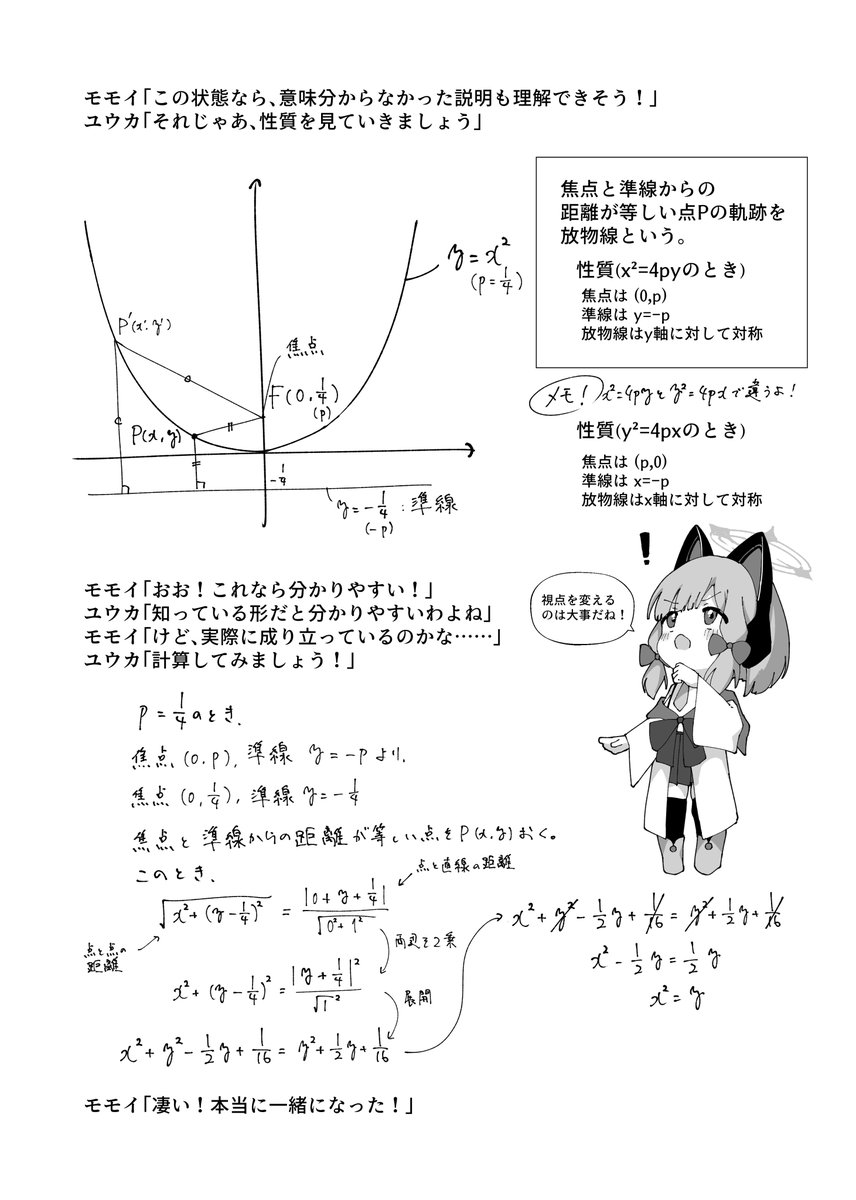 モモイ「この状態なら、意味分からなかった説明も理解できそう！」
ユウカ「それじゃあ、性質を見ていきましょう」
焦点と準線からの
距離が等しい点Pの軌跡を
放物線という。
性質(x²=4pyのとき)
焦点は (0,p)
準線は y=-p
放物線はy軸に対して対称
y=x²
(p=1/4)
P'(x',y')
焦点
F(0,1/4)
(p)
P(x,y)
-1/4
y=-1/4:準線
(-p)
メモ! x²=4pyとy²=4pxで違うよ!
性質(y²=4pxのとき)
焦点は (p,0)
準線は x=-p
放物線はx軸に対して対称
!
視点を変える
のは大事だね！
モモイ「おお！これなら分かりやすい！」
ユウカ「知っている形だと分かりやすいわよね」
モモイ「けど、実際に成り立っているのかな……」
ユウカ「計算してみましょう！」
p=1/4のとき、
焦点(0,p),準線 y=-pより、
焦点(0,1/4),準線 y=-1/4
焦点と準線からの距離が等しい点をP(x,y)おく。
このとき、
点と直線の距離
√(x²+(y-1/4)²) = |0+y+1/4|/√(0²+1²)
点と点の
距離
両辺を2乗
x²+(y-1/4)² = |y+1/4|²/√1²
展開
x²+y²-1/2y+1/16 = y²+1/2y+1/16
x²+y²-1/2y+1/16 = y²+1/2y+1/16
x²-1/2y=1/2y
x²=y
モモイ「凄い！本当に一緒になった！」